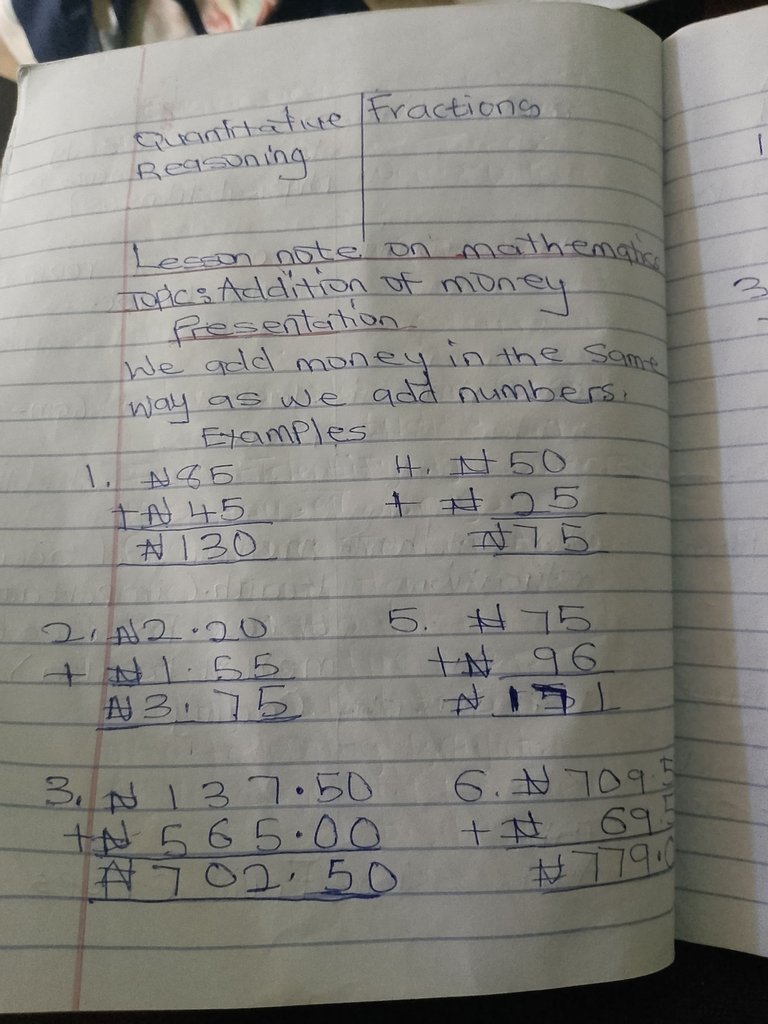 Quantitative Reasoning
Fractions
Lesson note on mathematics
Topic: Addition of money
Presentation
We add money in the same
way as we add numbers.
Examples
1. ₦85
+₦45
₦130
2. ₦2.20
+ ₦1.55
₦3.75
3. ₦137.50
+₦565.00
₦702.50
4. ₦50
+ ₦25
₦75
5. ₦75
+₦96
₦171
6. ₦709.5
+ ₦69.5
₦779.0
1
3